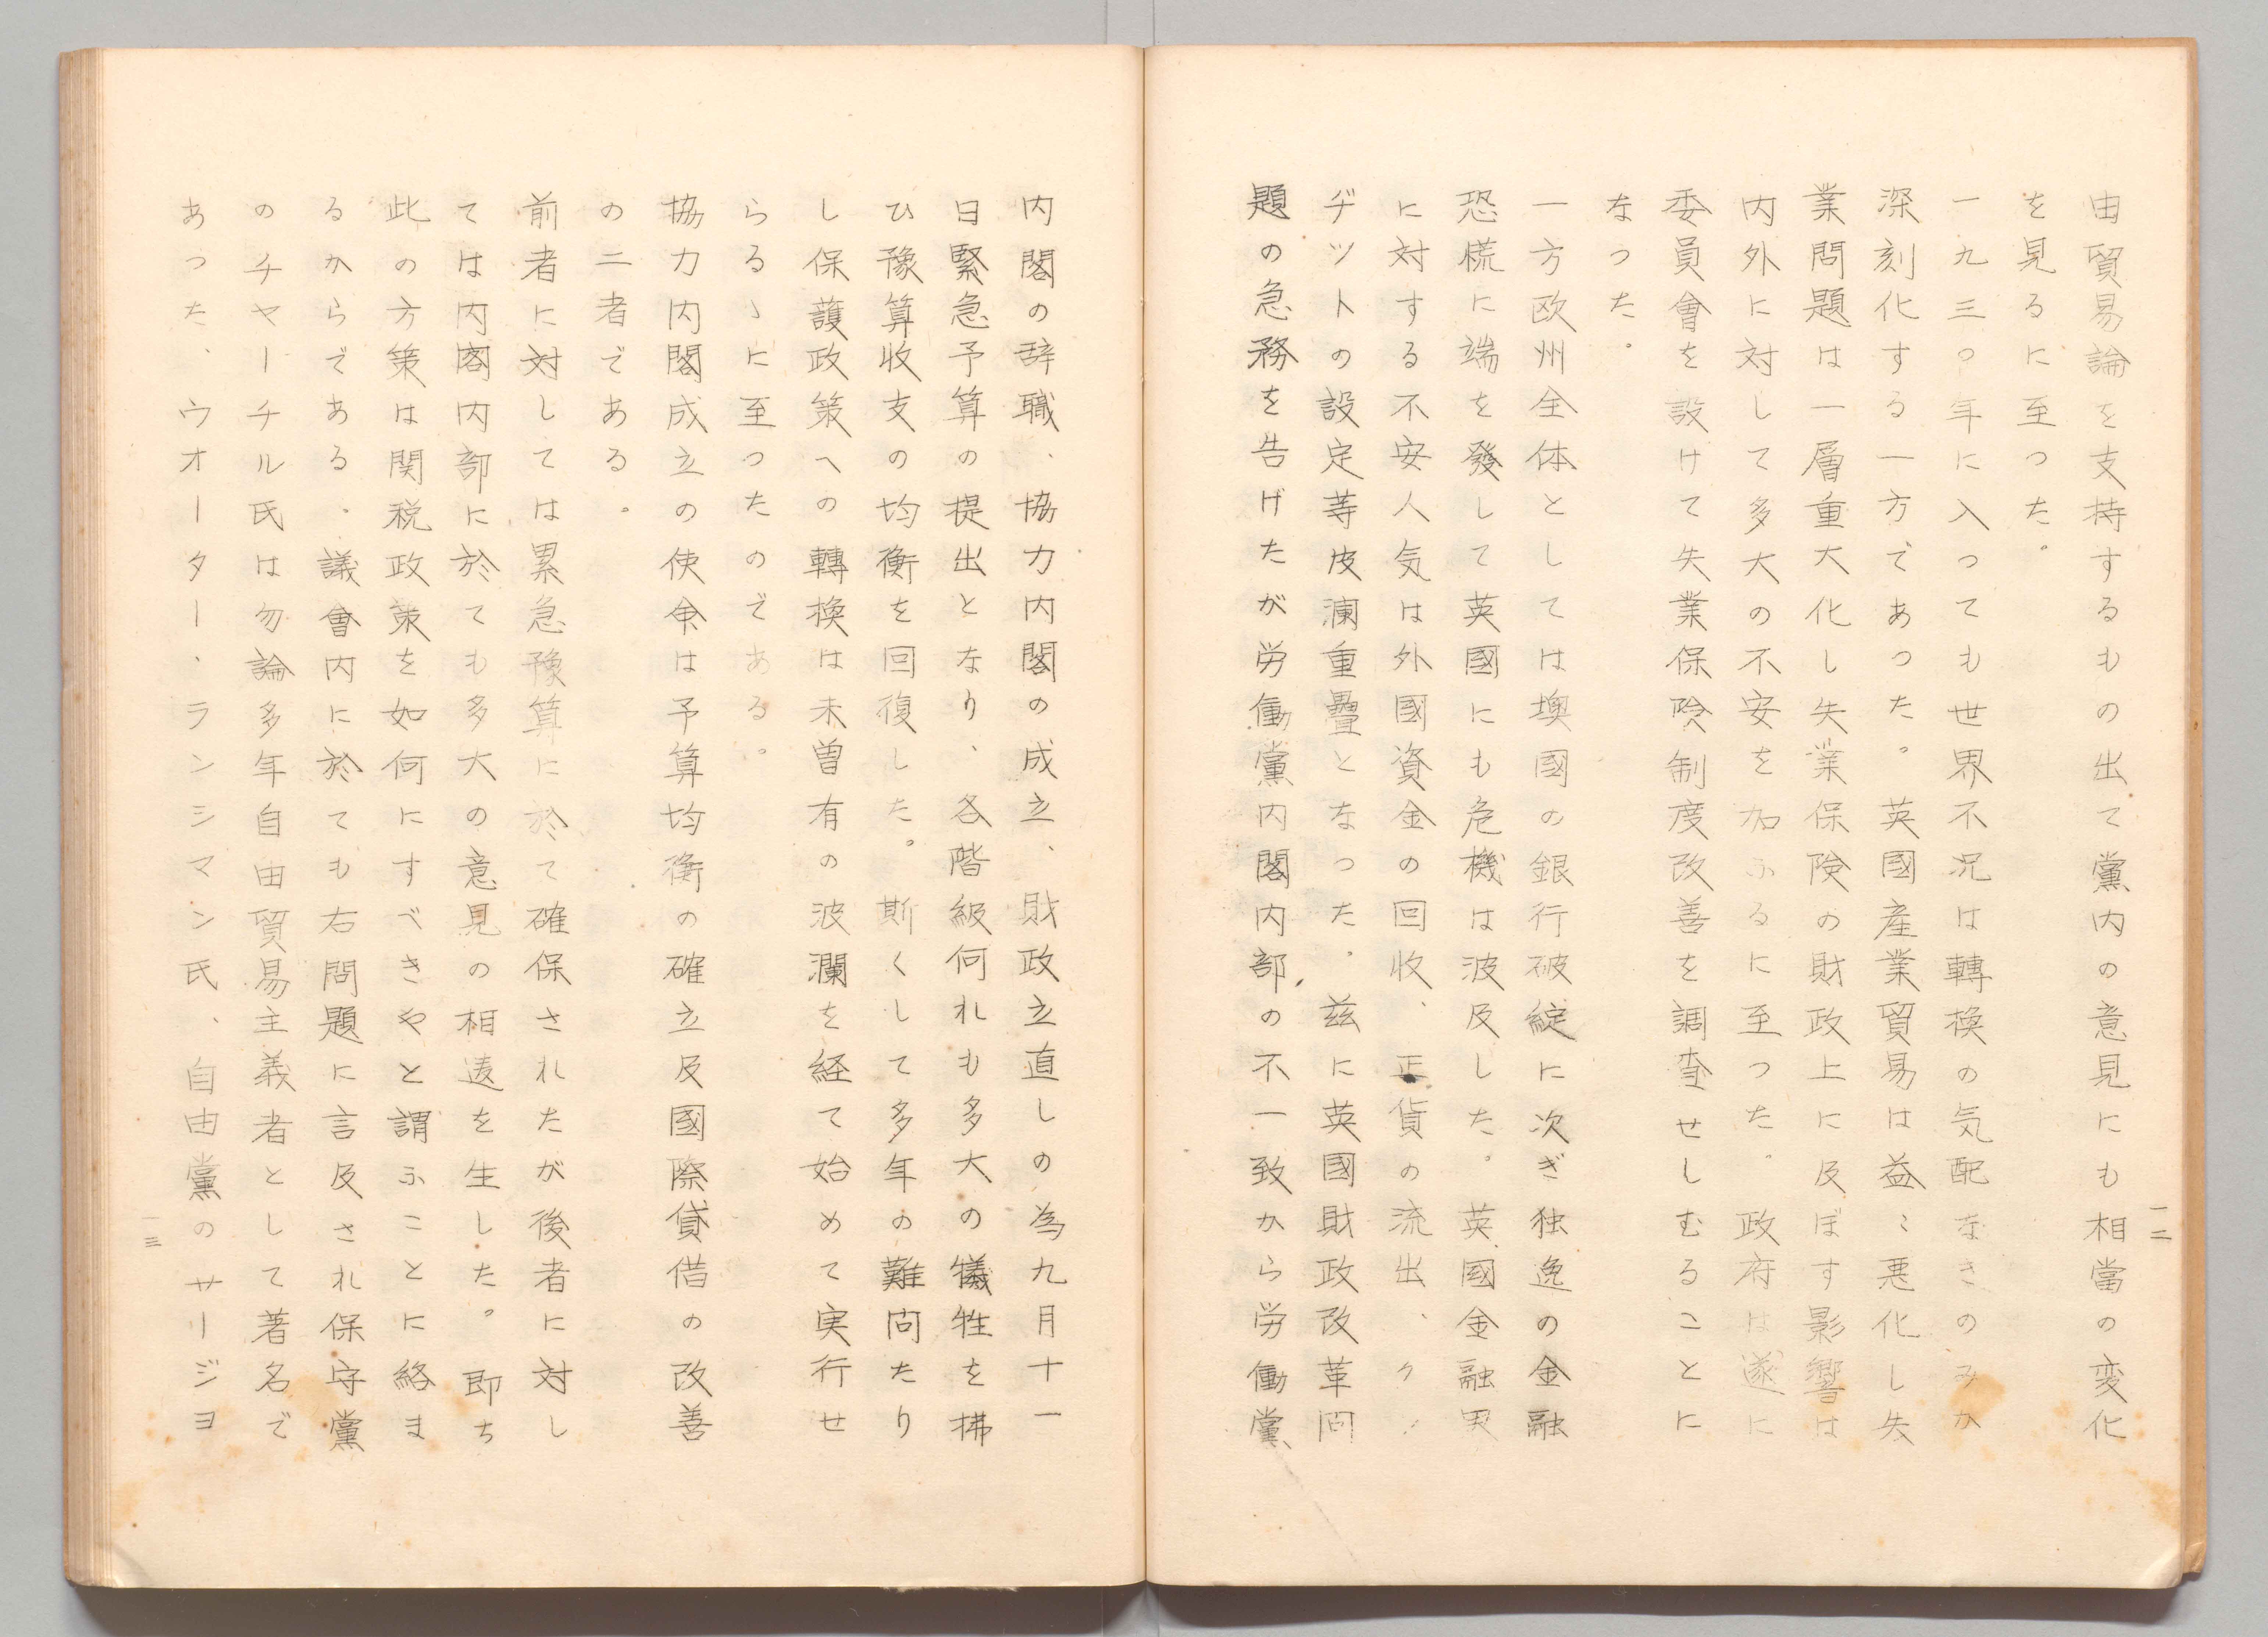 由貿易論を支持するもの出て黨内の意見にも相當の変化
を見るに至つた。
一九三〇年に入つても世界不況は轉換の気配なきのみか
深刻化する一方であつた。英國産業貿易は益〻悪化し失
業問題は一層重大化し失業保険の財政上に及ぼす影響は
内外に対して多大の不安を加ふるに至つた。政府は遂に
委員會を設けて失業保険制度改善を調査せしむることに
なつた。
一方欧州全体としては墺國の銀行破綻に次ぎ独逸の金融
恐慌に端を發して英國にも危機は波及した。英國金融界
に対する不安人気は外國資金の回收、正貨の流出、ク
ヂツトの設定等波瀾重疊となつた。茲に英國財政改革問
題の急務を告げたが労働黨内閣内部の不一致から労働黨
一二
内閣の辞職、協力内閣の成立、財政立直しの為九月十一
日緊急予算の提出となり、各階級何れも多大の犠牲を拂
ひ豫算收支の均衡を回復した。斯くして多年の難問たり
し保護政策への轉換は未曽有の波瀾を経て始めて実行せ
らるゝに至つたのである。
協力内閣成立の使命は予算均衡の確立及國際貸借の改善
の二者である。
前者に対しては累急豫算に於て確保されたが後者に対し
ては内閣内部に於ても多大の意見の相違を生した。即ち
此の方策は関税政策を如何にすべきやと謂ふことに絡ま
るからである、議會内に於ても右問題に言及され保守黨
のチヤーチル氏は勿論多年自由貿易主義者として著名で
あつた、ウオーター、ランシマン氏、自由黨のサージヨ
一三